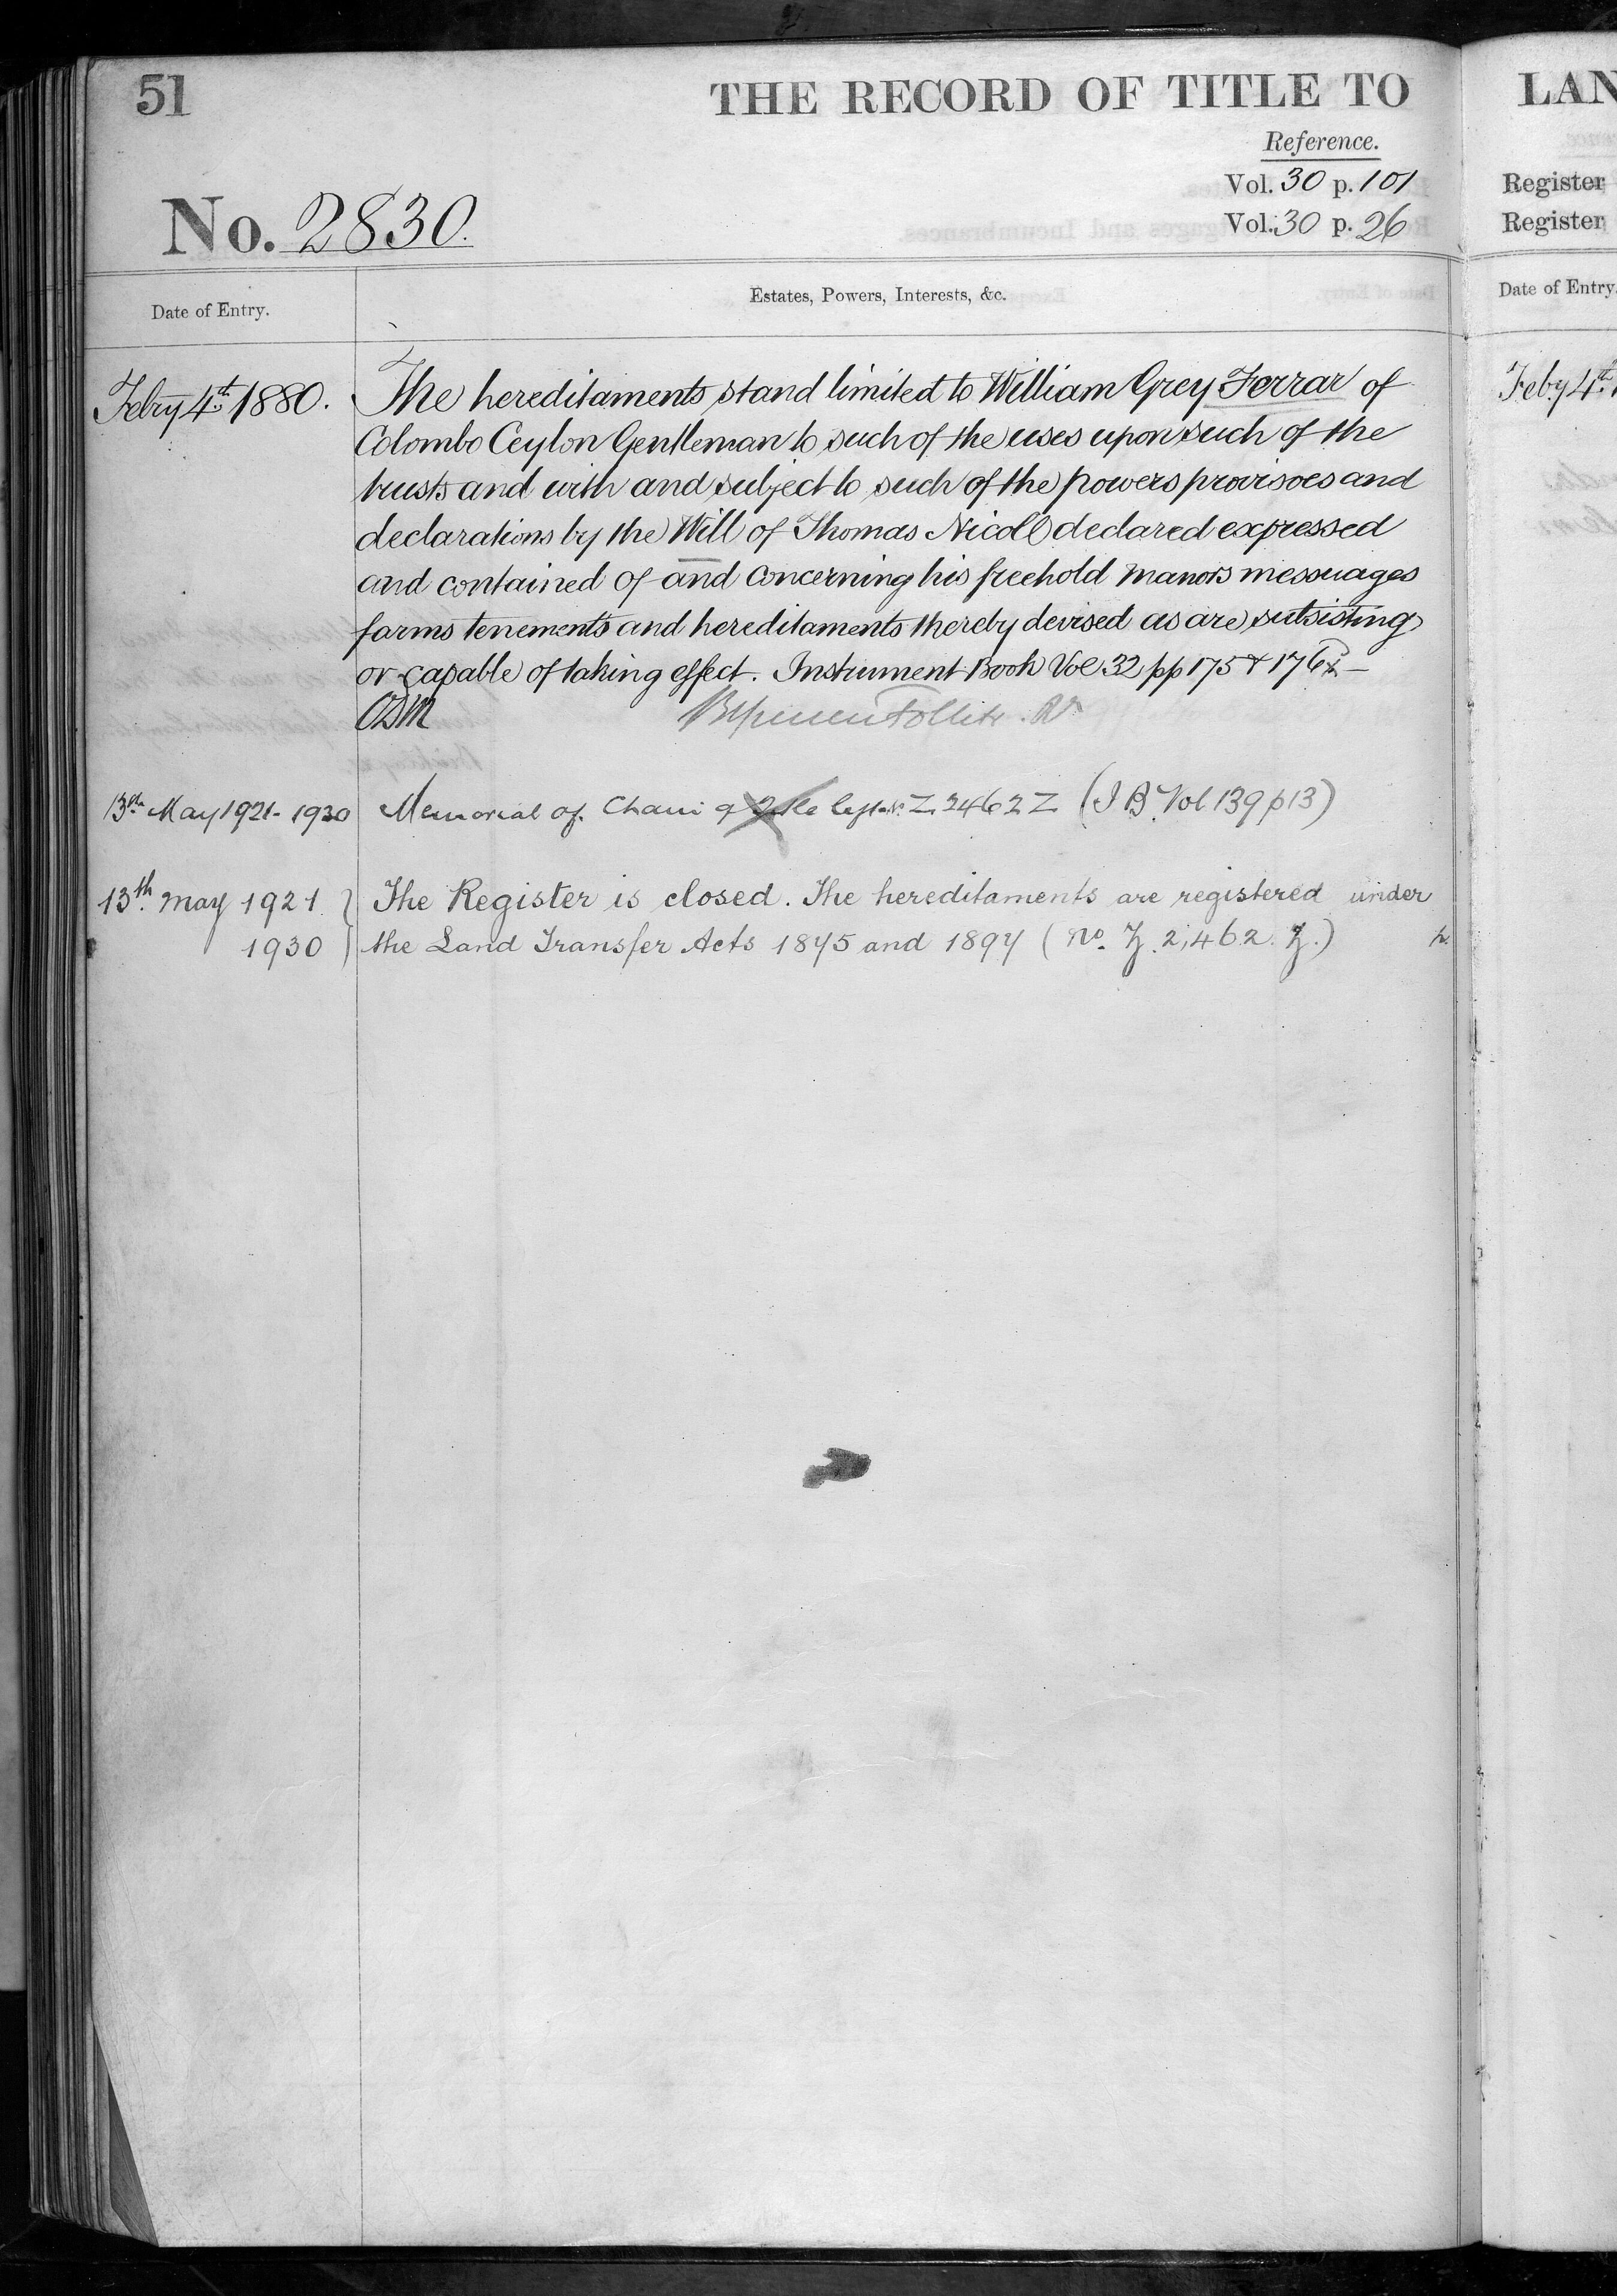 51
THE RECORD OF TITLE TO
LAN
Reference.
Vol. 30 p. 101
Register
No. 2830.
Vol. 30 p. 26
Register
Date of Entry.
Estates, Powers, Interests, &c.
Date of Entry.
Febry 4th 1880.
The hereditaments stand limited to William Grey Ferrar of
Colombo Ceylon Gentleman to such of the uses upon such of the
trusts and with and subject to such of the powers provisoes and
declarations by the Will of Thomas Nicoll declared expressed
and contained of and concerning his freehold manors messuages
farms tenements and hereditaments thereby devised as are subsisting
or capable of taking effect. Instrument Book Vol 32 pp 175 & 176
Feby 4th
13th May 1921 - 1930 Memorial of Z 2462 Z (I B Vol 139 p 13)
13th May 1921 } The Register is closed. The hereditaments are registered under
1930 } the Land Transfer Acts 1875 and 1897 (No. Z 2,462. Z.)